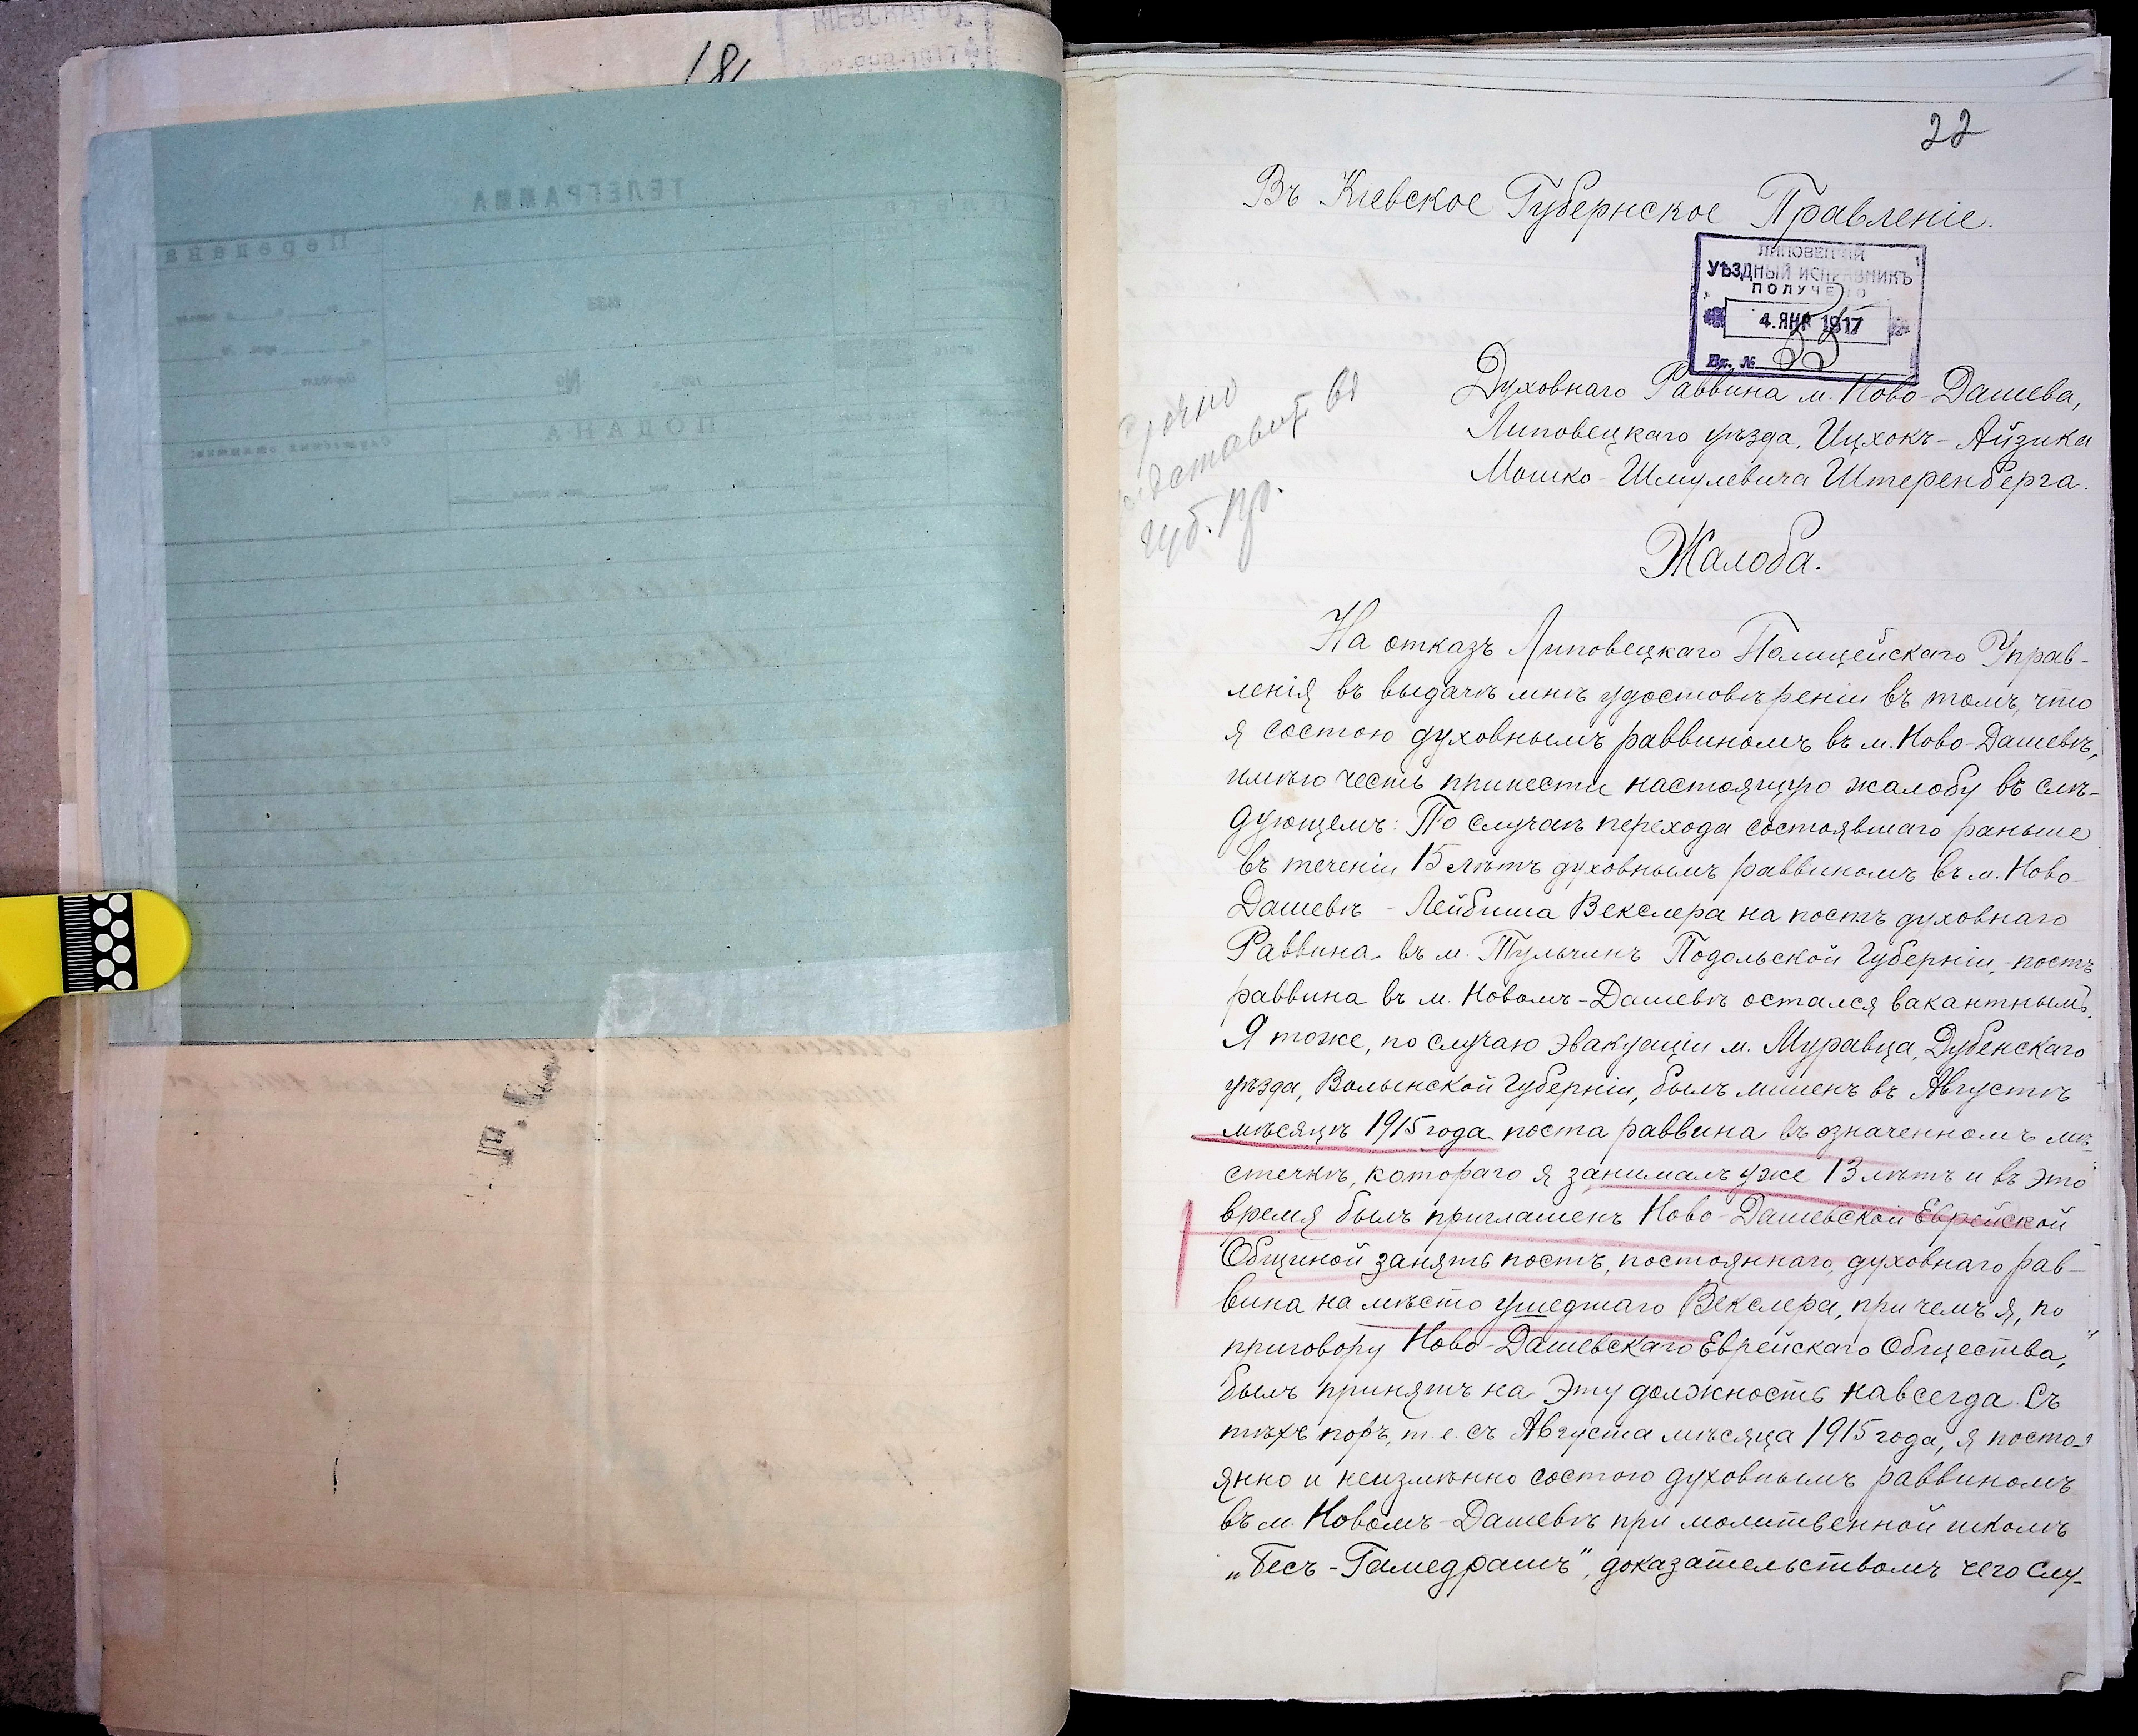 181
22
Въ Кіевское Губернское Правленіе.
ЛИПОВЕЦКІЙ
УѢЗДНЫЙ ИСПРАВНИКЪ
ПОЛУЧЕНО
4. ЯНВ 1917
Вх. №
Духовнаго Раввина м. Ново-Дашева,
Липовецкаго уѣзда, Ицхокъ-Айзика
Мошко-Шмулевича Штеренберга.
Срочно
доставить въ
Губ. пр.
Жалоба.
На отказъ Липовецкаго Полицейскаго Управ-
ленія въ выдачѣ мнѣ удостовѣренія въ томъ, что
я состою духовнымъ раввиномъ въ м. Ново-Дашевѣ,
имѣю честь принести настоящую жалобу въ слѣ-
дующемъ: По случаѣ перехода состоявшаго раньше
въ теченіи 15 лѣтъ духовнымъ раввиномъ въ м. Ново
Дашевѣ - Лейбиша Векслера на постъ духовнаго
Раввина въ м. Тульчинъ Подольской Губерніи, - постъ
раввина въ м. Новомъ-Дашевѣ остался вакантнымъ.
Я тоже, по случаю эвакуаціи м. Муравца, Дубенскаго
уѣзда, Волынской Губерніи, былъ лишенъ въ Августѣ
мѣсяцѣ 1915 года поста раввина въ означенномъ мѣ-
стечкѣ, котораго я занималъ уже 13 лѣтъ и въ это
время былъ приглашенъ Ново-Дашевской Еврейской
Общиной занять постъ, постояннаго, духовнаго рав-
вина на мѣсто ушедшаго Векслера, при чемъ я, по
приговору Ново-Дашевскаго Еврейскаго Общества,
былъ принятъ на эту должность навсегда. Съ
тѣхъ поръ, т. е. съ Августа мѣсяца 1915 года, я посто-
янно и неизмѣнно состою духовнымъ раввиномъ
въ м. Новомъ-Дашевѣ при молитвенной школѣ
„Бесъ-Гамедрашъ", доказательствомъ чего слу-